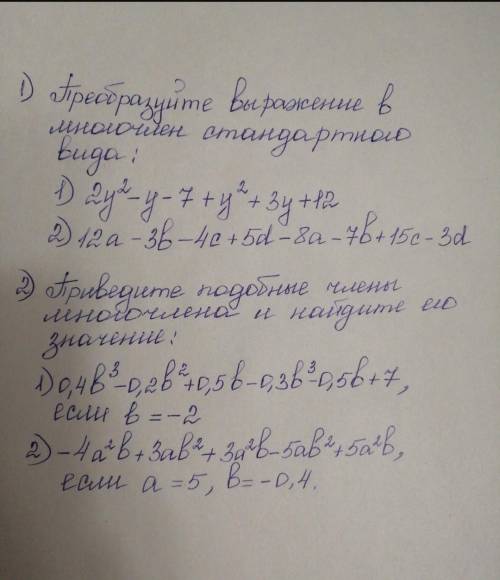 1) Преобразуйте выражение в
многочлен стандартного
вида:
1) 2y² - y - 7 + y² + 3y + 12
2) 12a - 3b - 4c + 5d - 8a - 7b + 15c - 3d
2) Приведите подобные члены
многочлена и найдите его
значение:
1) 0,4b³ - 0,2b² + 0,5b - 0,3b³ - 0,5b + 7,
если b = -2
2) -4a²b + 3ab² + 3a²b - 5ab² + 5a²b,
если a = 5, b = -0,4.